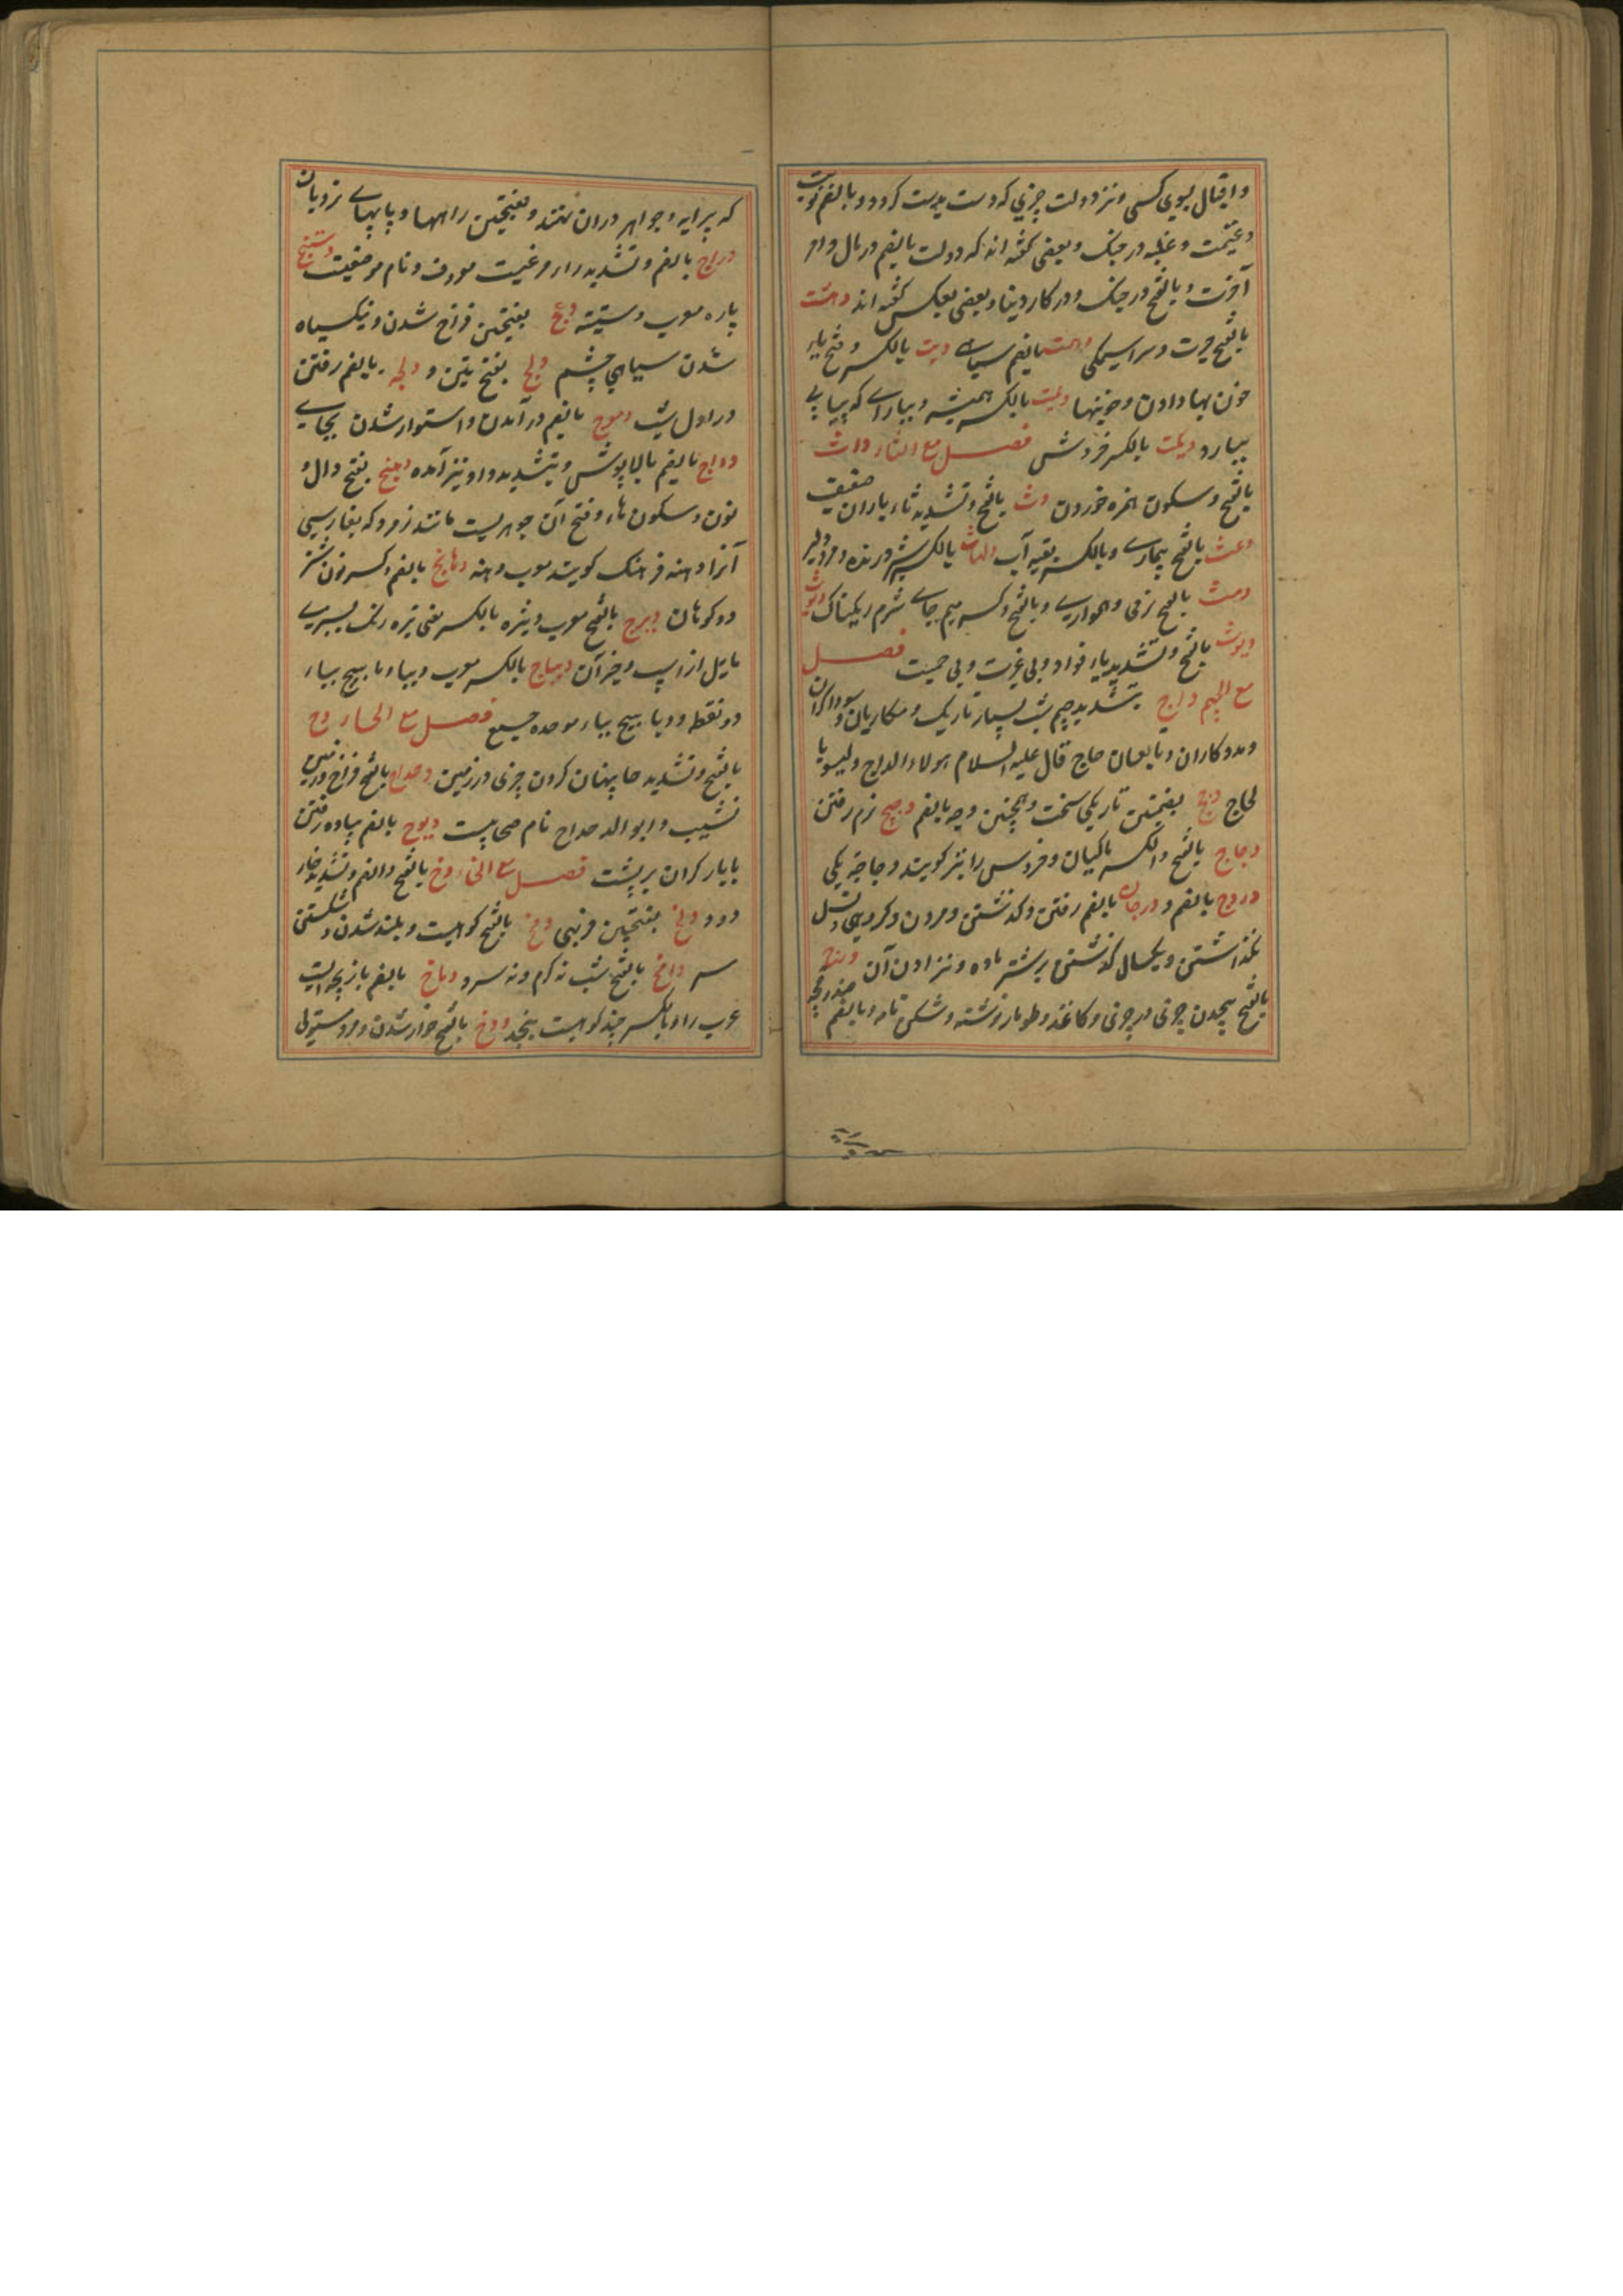 و اقبال بسوی کسی و نیز دولت چیزی که دست بدست کردد و بالضم نوبت
و غنیمت و غلبه در جنک و بعضی کفته اند که دولت بالضم در مال و امر
آخرت و بالفتح در جنک و در کار دنیا و بعضی بعکس کفته اند دهشت
بالفتح حیرت و سراسیمکی دهمت بالضم سیاهی دیت بالکسر و فتح یاء
خون بها دادن و خونبها دیمت بالکسر همیشه و بارانی که پیاپی
ببارد دیکت بالکسر فروش فصل مع الثاء داث
بالفتح و سکون همزه خوردن دث بالفتح و تشدید ثاء باران ضعیف
دعث بالفتح بیماری و بالکسر بقیه آب دلهاث بالکسر شیر درنده و مرد دلیر
دمث بالفتح نرمی و همواری و بالفتح و کسر میم جای نرم ریکناک
دیوث بالفتح و تشدید یاء قواد و بی غیرت و بی حمیت فصل
مع الجیم داج بتشدید جیم شب بسیار تاریک و مکاریان و سوداکران
و مددکاران و تابعان حاج قال علیه السلام هولاء الداج و لیسوا با
لحاج دج بضمتین تاریکی سخت و همچنین دجه بالضم دجیج نرم رفتن
دجاج بالفتح و الکسر ماکیان و خروس را نیز کویند دجاجة یکی
دروج بالضم و درجان بالضم رفتن و کذشتن و مردن و کروهی و نسل
نکذاشتن و یکسال کذشتن بر شتر ماده و نزادن آن درج
بالفتح پیچیدن چیزی در چیزی و کاغذ و طومار نوشته و شکن نامه و بالضم صندوقچه
که پیرایه و جواهر دران نهند و بفتحتین راهها و پایهای نردبان
دراج بالضم و تشدید راء مرغیست معروف و نام موضعیست دستینج
پاره معرب دستینه دعج بفتحتین فراخ شدن و نیک سیاه
شدن سیاهی چشم دلج بفتحتین و دلجه بالضم رفتن
در اول شب دموج بالضم درآمدن و استوار شدن بجای
دواج بالضم بالاپوش و بتشدید واو نیز آمده دهنج بفتح دال و
نون و سکون هاء و فتح آن جوهریست مانند زمرد که بفارسی
آنرا دهنه فرهنک کویند معرب دهنه دهانج بالضم و کسر نون شتر
دو کوهان دیزج بالفتح معرب دیزه بالکسر یعنی تیره رنک بسبزی
مایل از اسپ و خر آن دیباج بالکسر معرب دیبا و دیابیج بیاء
دو نقطه و دبابیج بباء موحده جمع فصل مع الحاء دح
بالفتح و تشدید حا پنهان کردن چیزی در زمین دحداح بالفتح فراخ و زمین
نشیب و ابو الدحداح نام صحابیست دلوح بالضم پیاده رفتن
با بار کران بر پشت فصل مع الخاء دخ بالفتح و الضم و تشدید خاء
دود دلخ بفتحتین فربهی دمخ بالفتح کوهیست و بلند شدن و شکستن
سر دامخ بالفتح شب نه کرم و نه سرد دباخ بالضم بازیچه ایست
عرب را و بالکسر چند کوهیست بنجد دوخ بالفتح خوار شدن و مرد مستولی